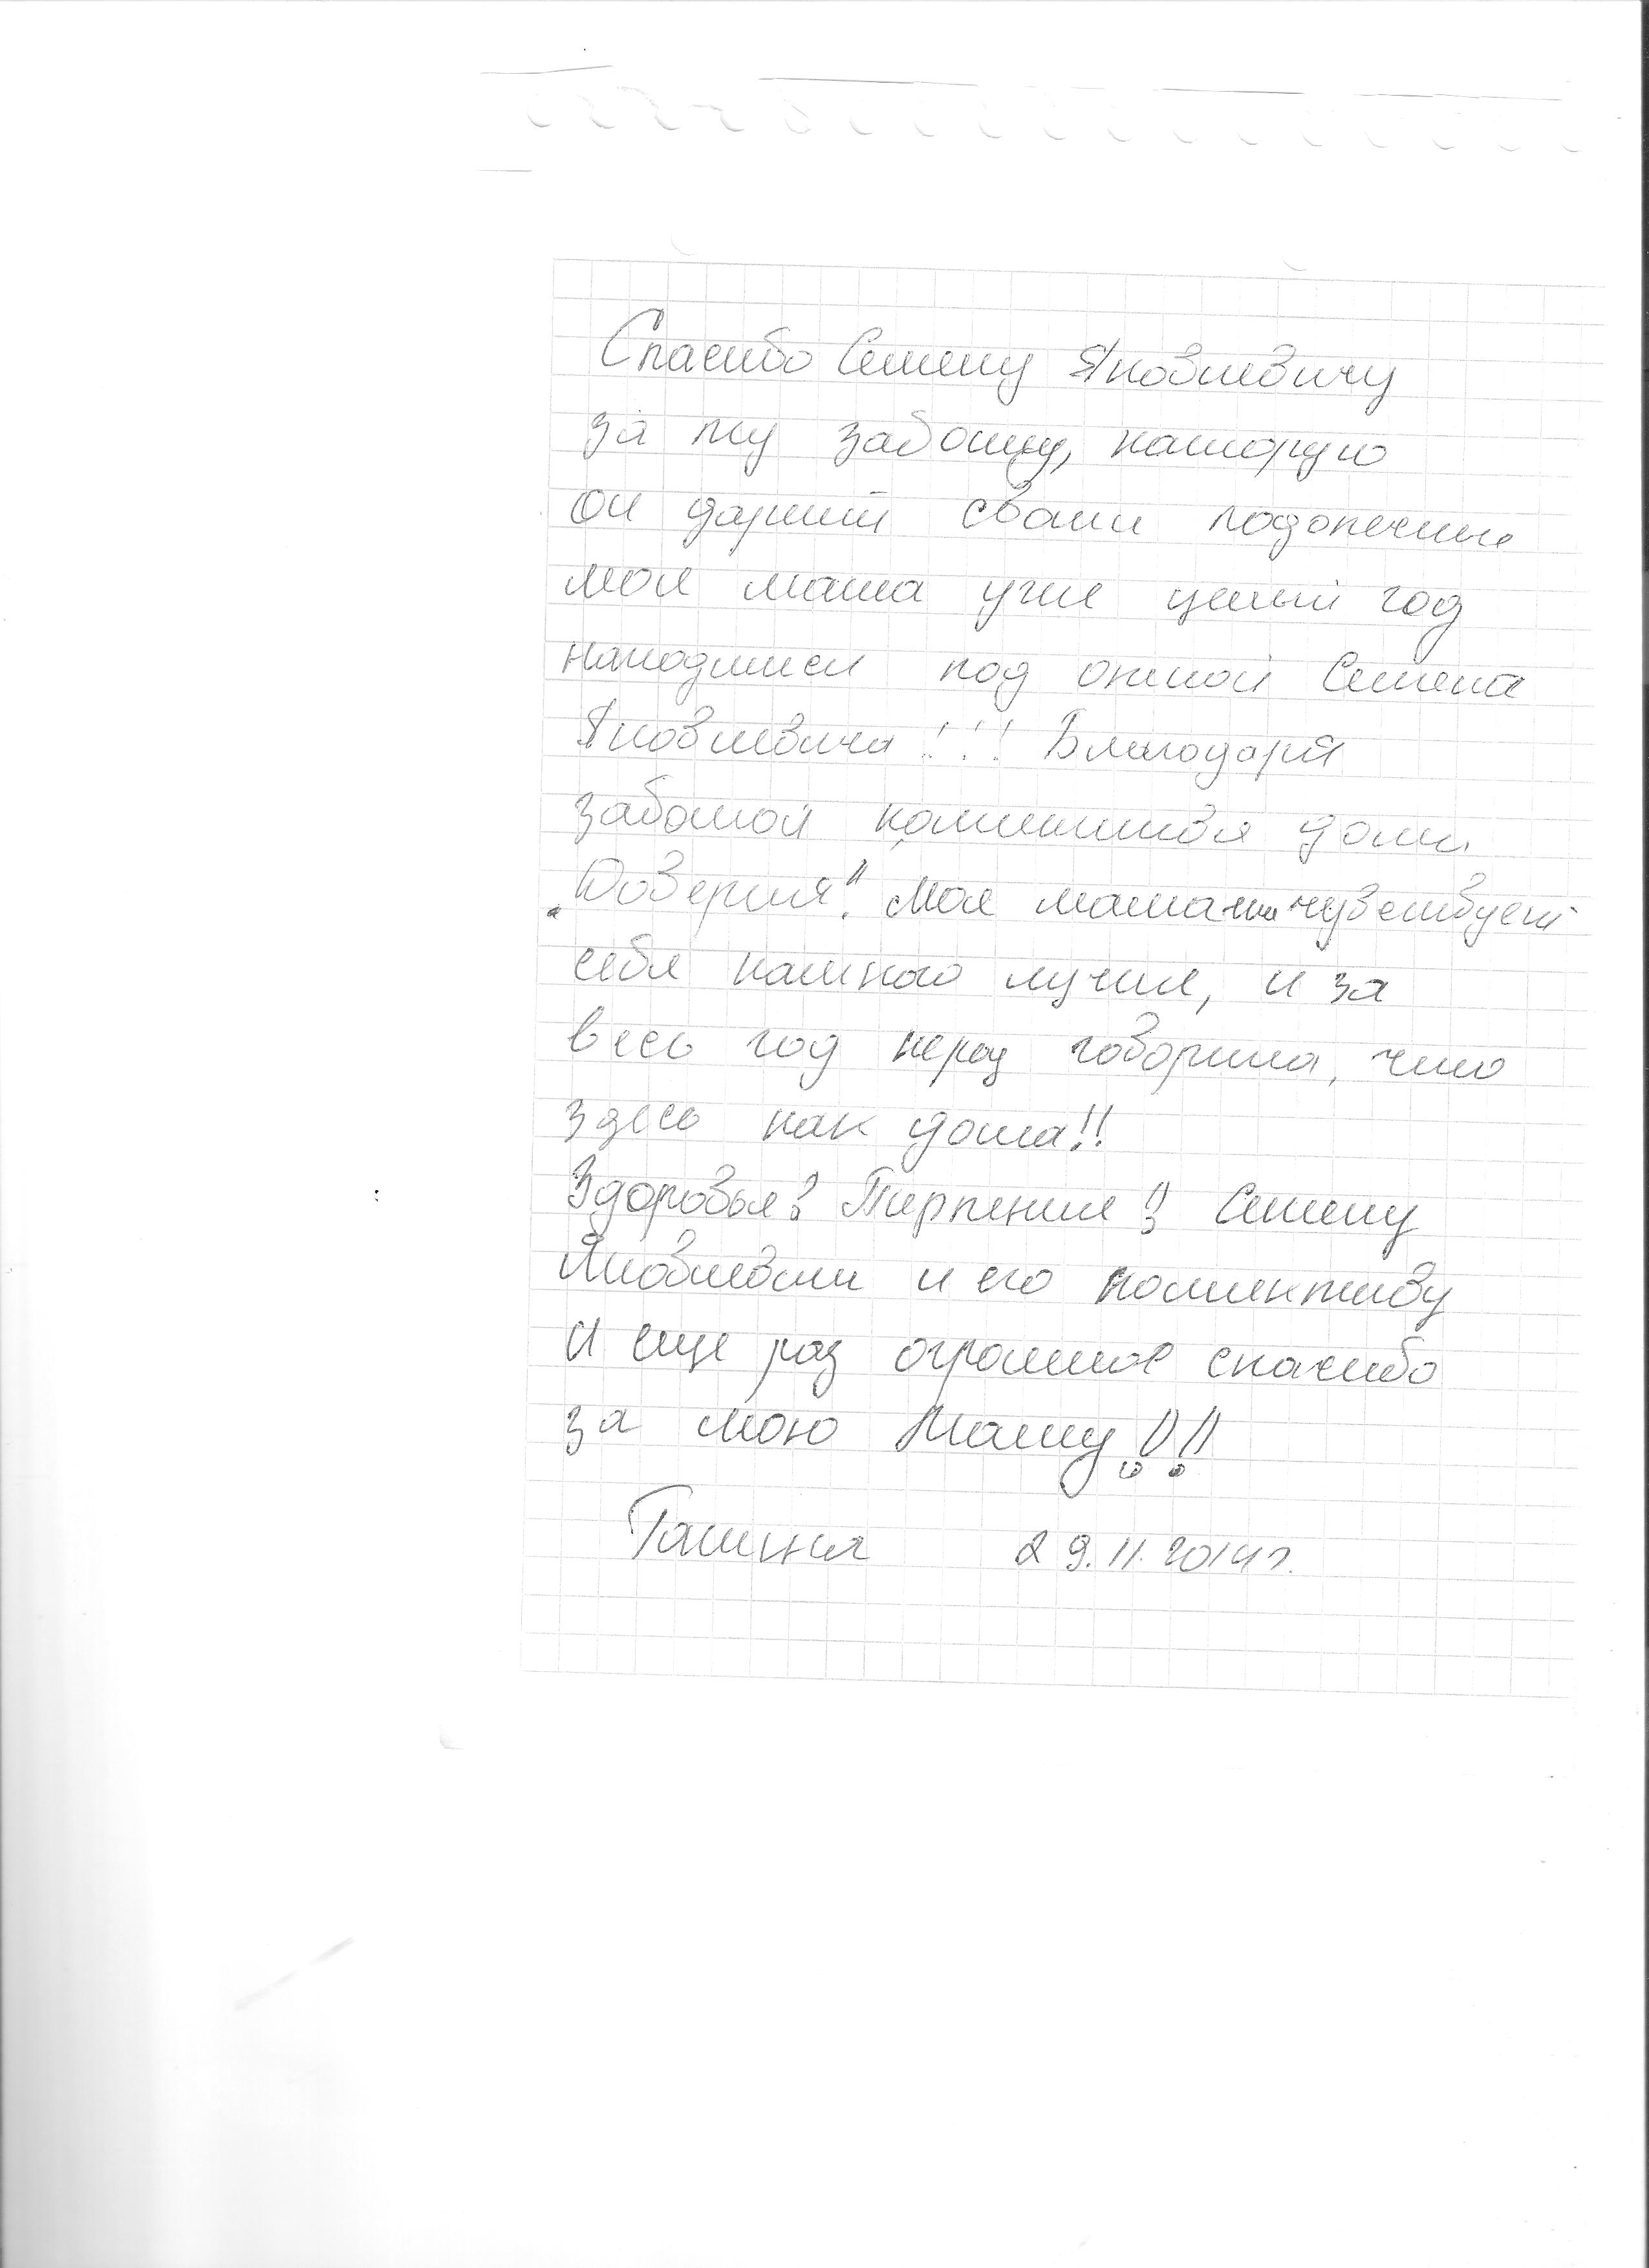 Спасибо Семену Яковлевичу
за ту заботу, которую
он дарит своим подопечным
моя мама уже целый год
находится под опекой Семена
Яковлевича!!! Благодаря
заботой коллектива дома
"Доверия". Моя мама чувствует
себя намного лучше, и за
весь год нераз говорила, что
здесь как дома!!
Здоровья! Терпения! Семену
Яковлевичу и его коллективу
и еще раз огромное спасибо
за мою Маму!!!
Галина 29.11.2014г.